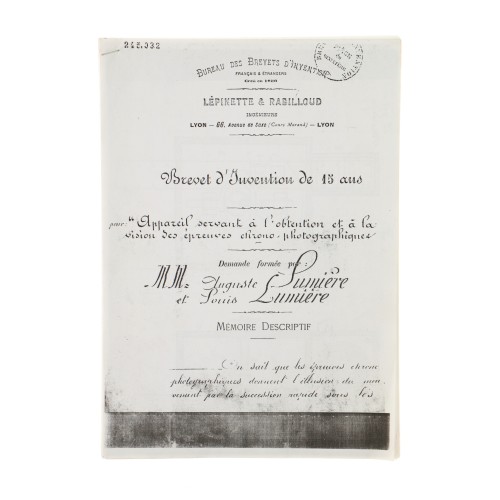 245.032
BUREAU DES BREVETS D'INVENTION
FRANÇAIS & ÉTRANGERS
LÉPINETTE & RABILLOUD
INGÉNIEURS
LYON – 66, Avenue de Saxe (Cours Morand) – LYON
Brevet d'Invention de 15 ans
pour: "Appareil servant à l'obtention et à la
vision des épreuves chrono-photographiques
Demande formée par:
MM. Auguste Lumière
et Louis Lumière
MÉMOIRE DESCRIPTIF
On sait que les épreuves chrono
photographiques donnent l'illusion du mou
vement par la succession rapide sous les